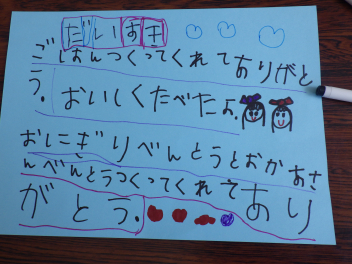 だいすき
ごはんつくってくれてありがと
う。おいしくたべたよ。
おにぎりべんとうとおかあさ
んべんとうつくってくれてあり
がとう。